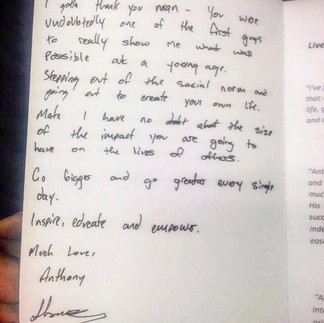 I gotta thank you man - You were
undoubtedly one of the first guys
to really show me what was
possible at a young age.
Stepping out of the social norm and
going out to create your own life.
Mate I have no doubt about the size
of the impact you are going to
have on the lives of others.
Go bigger and go greater every single
day.
Inspire, educate and empower.
Much Love,
Anthony
Live
"I've
that
life,
and
"Ant
and
muc
His
succ
inde
eas
"A
inte